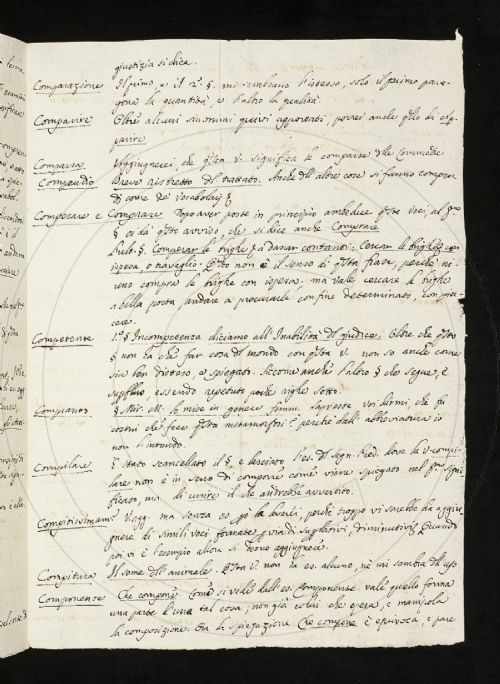 giustizia si dica.
Comparazione Il primo, e il 2º. §. mi sembrano l'istesso, solo il primo para-
gona la quantità, e l'altro la qualità.
Comparire Oltre alcuni sinonimi quivi aggiunti, porrei anche qllo di
parire
Comparsa Aggiungerei, che qsta V. significa le comparse dlle Commedie
Compendio Breve ristretto dl trattato. Anche dll'altre cose si fanno compen-
di come de' vocabolarj
Comperare e Comprare. Dopo aver poste in principio ambedue qste voci al pº
§ ci dà qsto avviso, che si dice anche Comprare
Sub. §. Comperar le brighe a danar contanti: Cercar le brighe con
ispesa, o travaglio. Qsto non è il senso di qsta frase, perchè ni-
uno compra le brighe con ispesa, ma vale cercare le brighe
a bella posta, andare a procurarle con fine determinato,
cere.
Competente 1º. § Incompetenza diciamo all'Inabilità dl giudice. Oltre che qsto
§ non ha che far cosa dl mondo con qsta V. non so anche come
sia ben disteso, e spiegato. Siccome anche l'altro § che segue, è
superfluo essendo repetuto poche righe sotto
Compianto § Mir. M. lo mise in genere femm. Sapreste voi dirmi che
costui che fece qsta metamorfosi? perchè dall'abbreviatura io
non l'intendo.
Compilare È stato scancellato il §, e lasciato l'es. dl Segn. Pred. dove la V. compi-
lare non è in senso di comporre come viene spiegato nel pº signi-
ficato, ma di unire il che andrebbe avvertito.
Compitissimamᵉ V. agg. ma senza es. io la leverei, perchè troppo vi sarebbe da aggiu-
gnere di simili voci formate, per via di suplativi, diminutivi Quando
poi vi è l'esempio allora si deono aggiugnere.
Compitura Il seme dll'animale. Qsta V. non ha es. alcuno, nè mi sembra dll'uso
Componente Che compone. Come si vede dall'es. Componente vale quello forma
una parte d'una tal cosa, non già colui che opera, e manipola
la composizione. Ora la spiegazione Che compone è equivoca, e pare